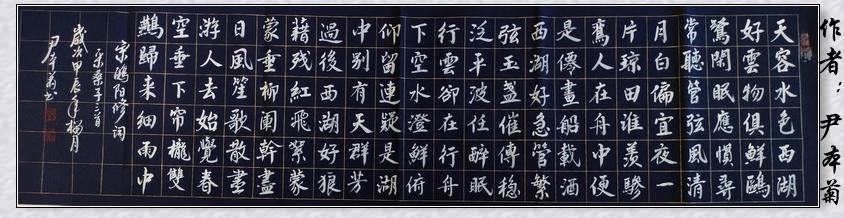 天容水色西湖
好雲物俱鮮鷗
鷺閑眠應慣尋
常聽管弦風清
月白偏宜夜一
片琼田谁羨驂
鸞人在舟中便
是僊畫船載酒
西湖好急管繁
弦玉盞催傳穩
泛平波任醉眠
行雲卻在行舟
下空水澄鮮俯
仰留連疑是湖
中別有天群芳
過後西湖好狼
藉残紅飛絮蒙
蒙垂柳闌幹盡
日風笙歌散盡
游人去始覺春
空垂下帘櫳雙
鷰歸来細雨中
宋歐陽修词
采桑子三首
歲次甲辰年梅月
尹本菊书
作者：尹本菊